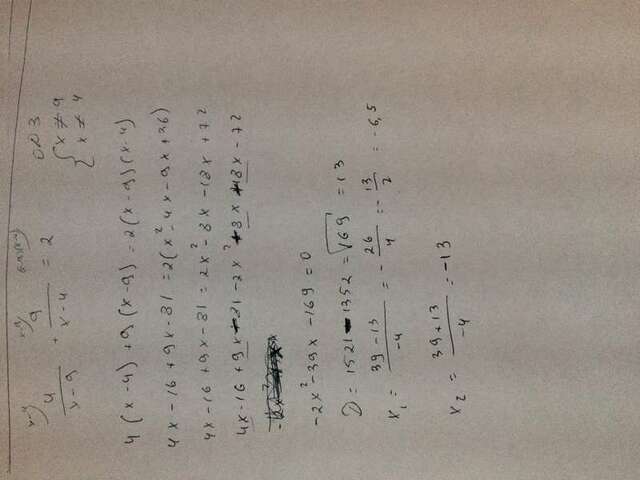 x-4 x-9 (x-9)(x-4)
4/(x-9) + 9/(x-4) = 2 ОДЗ
{ x ≠ 9
x ≠ 4
4(x-4) + 9(x-9) = 2(x-9)(x-4)
4x - 16 + 9x - 81 = 2(x² - 4x - 9x + 36)
4x - 16 + 9x - 81 = 2x² - 8x - 18x + 72
4x - 16 + 9x - 81 - 2x² + 8x + 18x - 72
-2x² - 39x - 169 = 0
D = 1521 - 1352 = √169 = 13
x₁ = (39 - 13)/(-4) = - 26/4 = - 13/2 = -6,5
x₂ = (39 + 13)/(-4) = -13